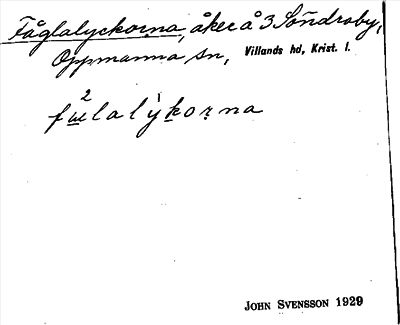 Fåglalyckorna, åker å 3 Söndraby,
Oppmanna sn, Villands hd, Krist. l.
John Svensson 1929